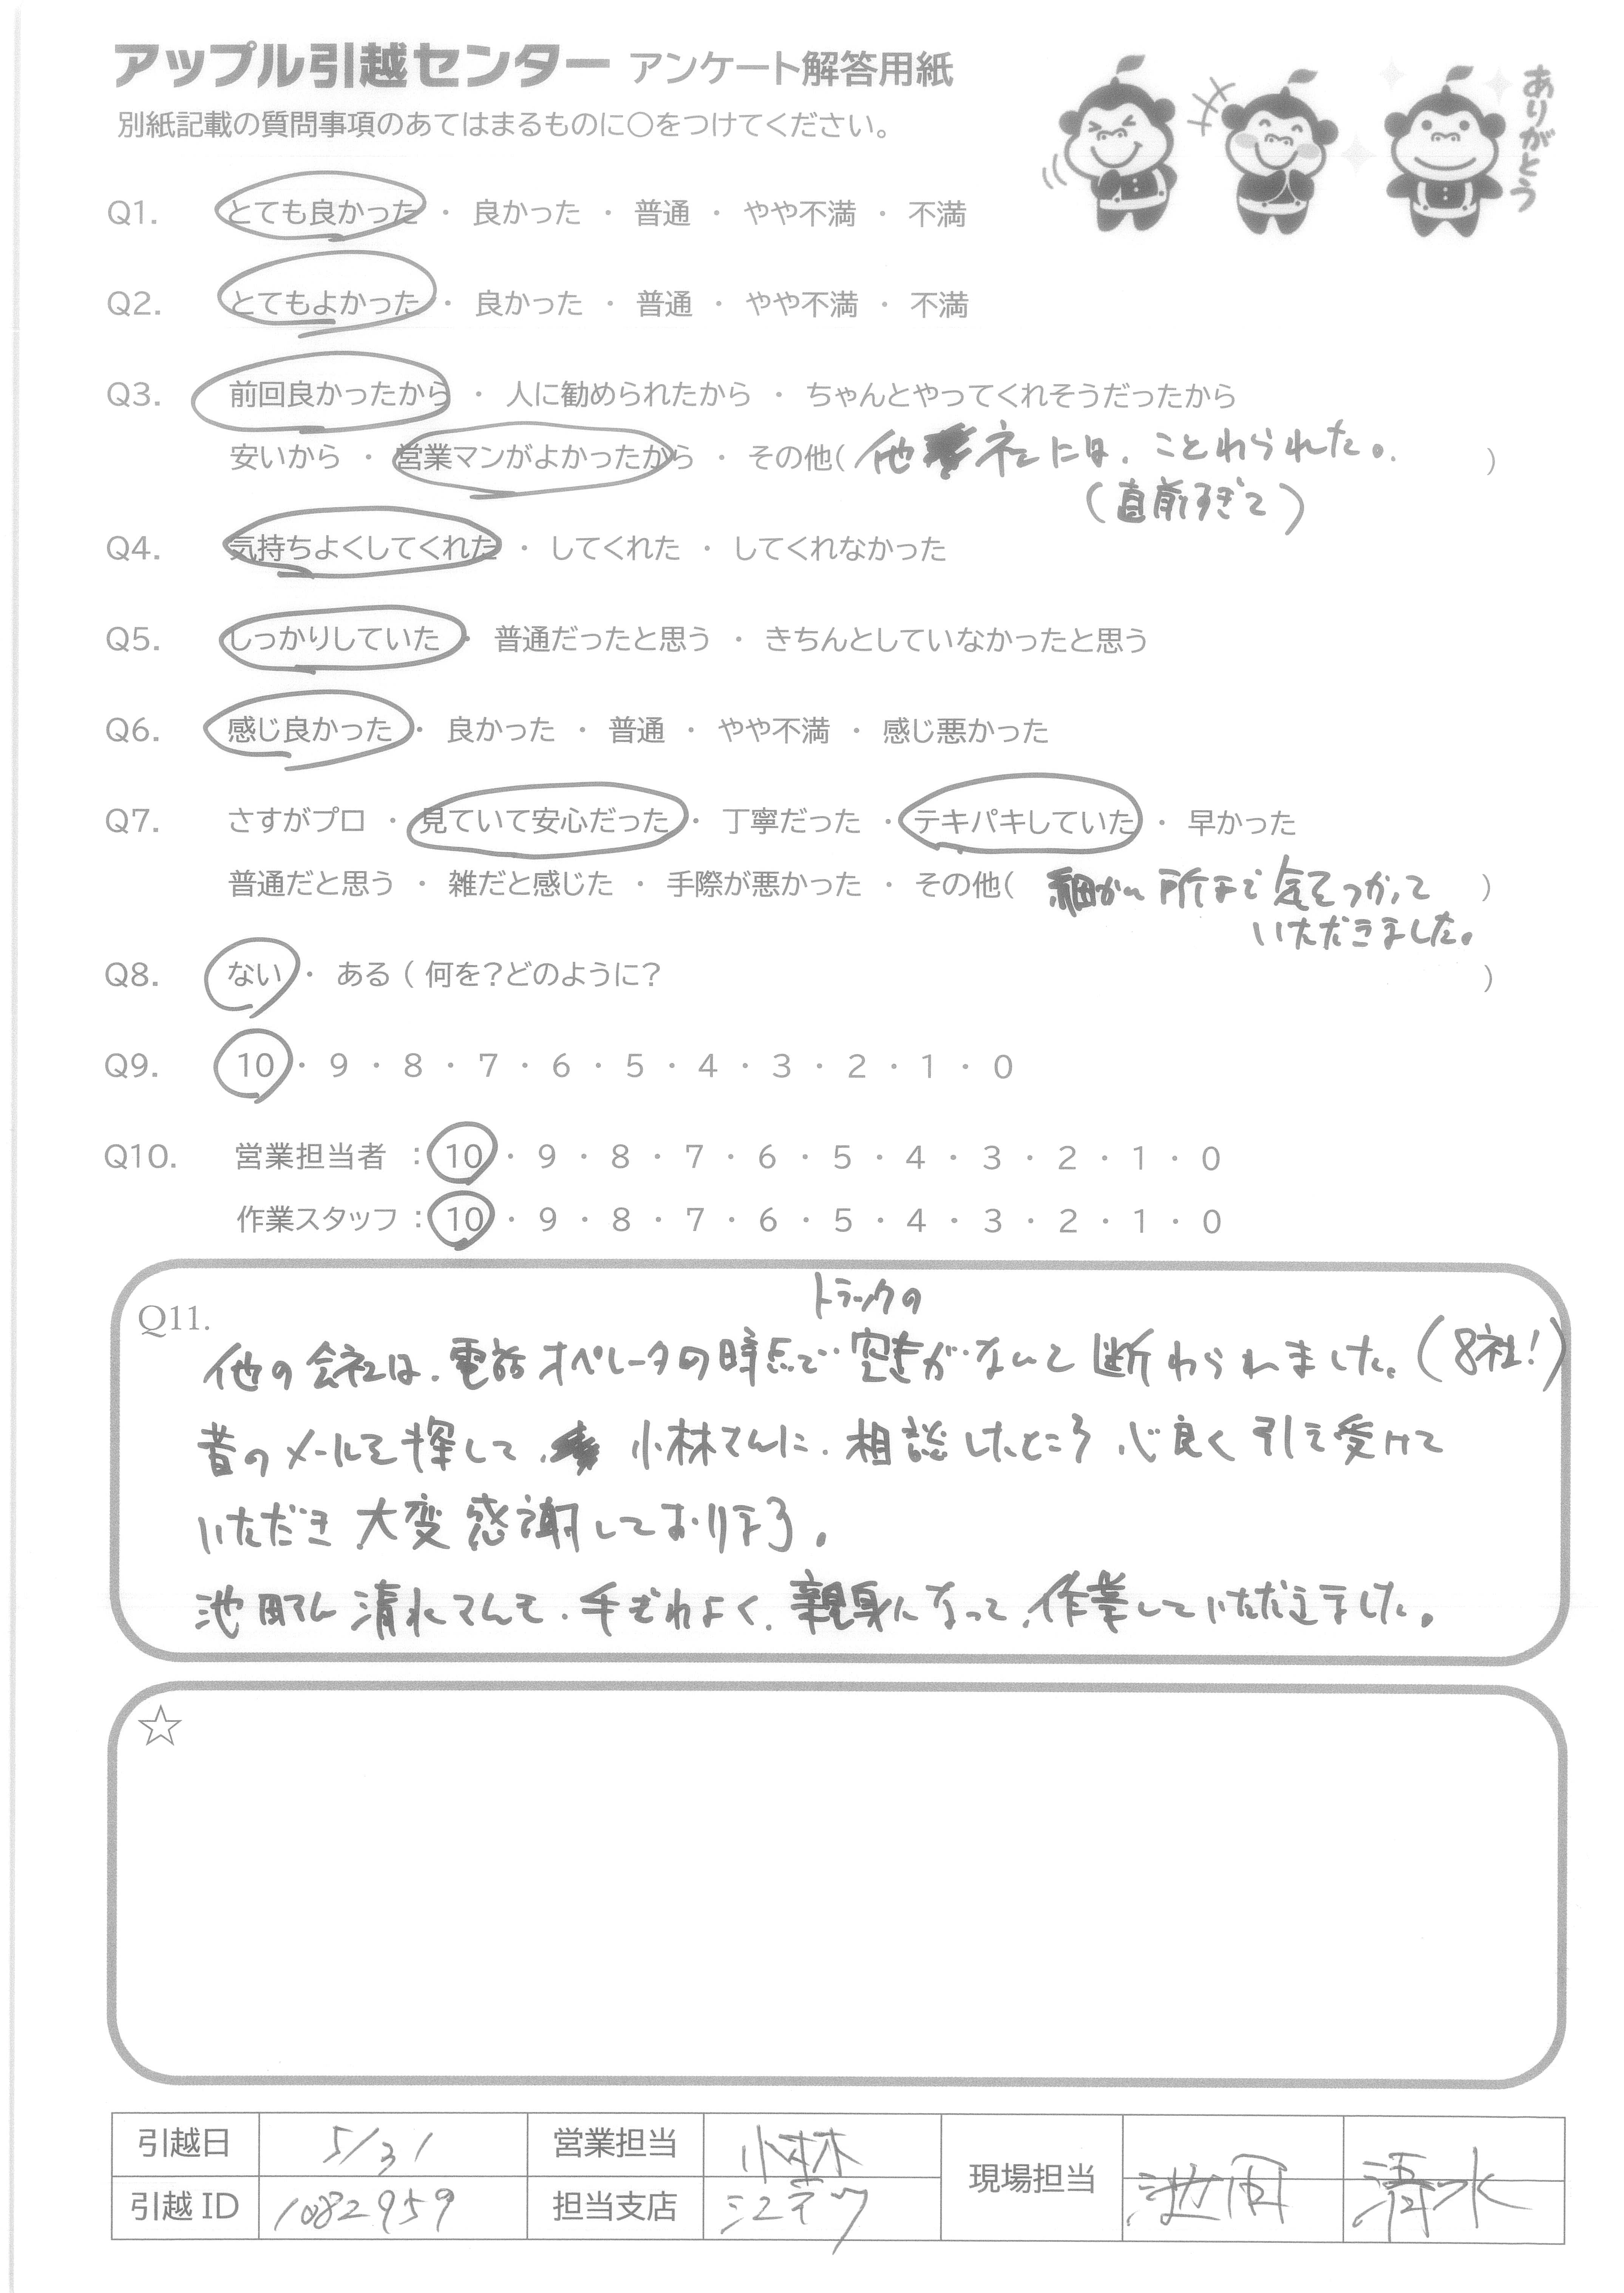 アップル引越センター アンケート解答用紙
別紙記載の質問事項のあてはまるものに○をつけてください。
ありがとう
Q1. とても良かった ・ 良かった ・ 普通 ・ やや不満 ・ 不満
Q2. とてもよかった ・ 良かった ・ 普通 ・ やや不満 ・ 不満
Q3. 前回良かったから ・ 人に勧められたから ・ ちゃんとやってくれそうだったから
安いから ・ 営業マンがよかったから ・ その他( 他社には、ことわられた。 )
(直前すぎて)
Q4. 気持ちよくしてくれた ・ してくれた ・ してくれなかった
Q5. しっかりしていた ・ 普通だったと思う ・ きちんとしていなかったと思う
Q6. 感じ良かった ・ 良かった ・ 普通 ・ やや不満 ・ 感じ悪かった
Q7. さすがプロ ・ 見ていて安心だった ・ 丁寧だった ・ テキパキしていた ・ 早かった
普通だと思う ・ 雑だと感じた ・ 手際が悪かった ・ その他( 細かい所まで気をつかって )
いただきました。
Q8. ない ・ ある ( 何を?どのように? )
Q9. 10 ・ 9 ・ 8 ・ 7 ・ 6 ・ 5 ・ 4 ・ 3 ・ 2 ・ 1 ・ 0
Q10. 営業担当者 : 10 ・ 9 ・ 8 ・ 7 ・ 6 ・ 5 ・ 4 ・ 3 ・ 2 ・ 1 ・ 0
作業スタッフ : 10 ・ 9 ・ 8 ・ 7 ・ 6 ・ 5 ・ 4 ・ 3 ・ 2 ・ 1 ・ 0
トラックの
Q11.
他の会社は、電話オペレータの時点で空きがないと断わられました。(8社!)
昔のメールを探して、小林さんに、相談したところ 心良く引き受けて
いただき 大変感謝しております。
池田さん 清水さんも、手ぎわよく、親身になって、作業していただきました。
☆
引越日 5/31 営業担当 小林 現場担当 池田 清水
引越ID 1082959 担当支店 江東